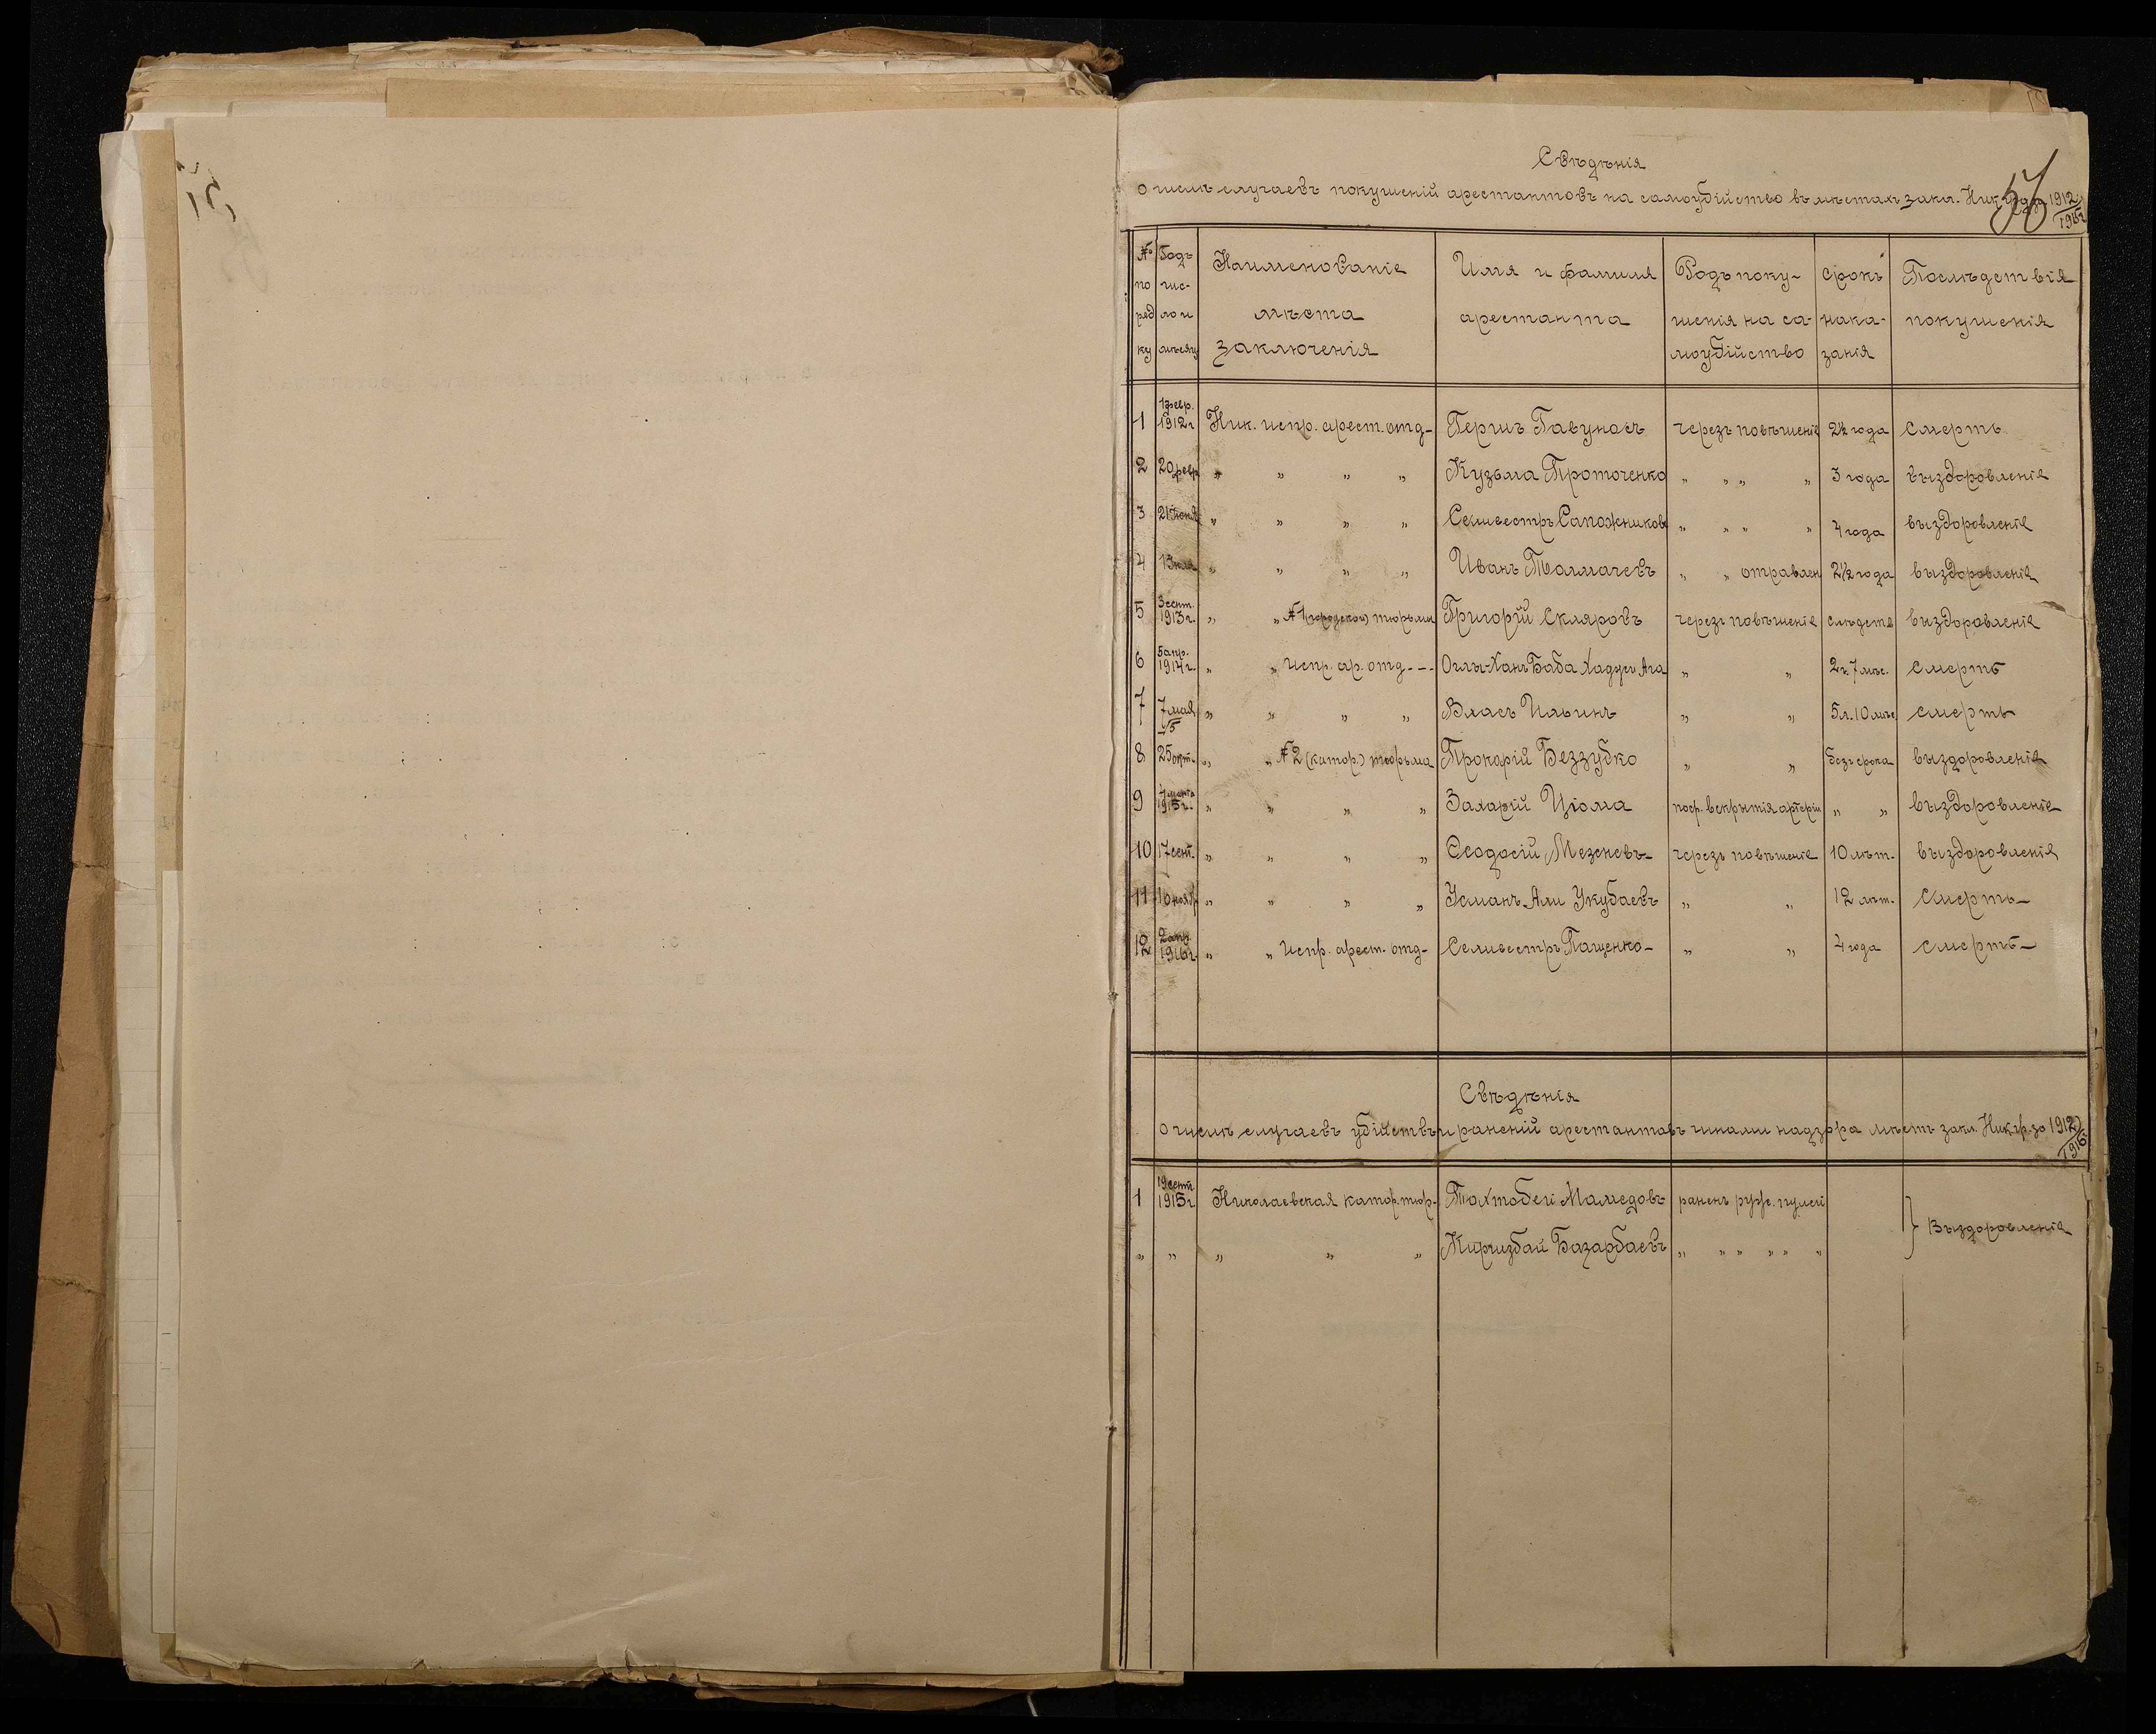 Свѣдѣнія
о числѣ случаевъ покушеній арестантовъ на самоубійство въ мѣстахъ закл. Ник. 1912/1916 г
57
№ по ряд ку | Годъ чис- ло и мѣсяцъ | Наименованіе мѣста заключенія | Имя и фамилія арестанта | Родъ поку- шенія на са- моубійство | Срокъ нака- занія | Послѣдствія покушенія
1 | 1 февр. 1912 г. | Ник. испр. арест. отд- | Гершъ | черезъ повѣшеніе | 2½ года | смерть
2 | 20 февр | „ „ „ „ | Кузьма Проточенко | „ „ „ „ | 3 года | выздоровленіе
3 | 21 іюня | „ „ „ „ | Селивестръ Сапожниковъ | „ „ „ „ | 4 года | выздоровленіе
4 | | „ „ „ „ | Иванъ Толмачевъ | „ „ отравлен | 2½ года | выздоровленіе
5 | 3 сент. 1913 г. | „ „ № 1 (городской) тюрьмы | Григорій Скляровъ | черезъ повѣшеніе | слѣдств | выздоровленіе
6 | 5 апр. 1914 г. | „ „ испр. ар. отд - - - | Оглы-Ханъ Баба Ага | „ „ | 2 г. 7 мѣс. | смерть
7 | 7 мая | „ „ „ „ | Власъ Ильинъ | „ „ | 5 л. 10 мѣс | смерть
8 | 25 окт. | „ „ № 2 (катор.) тюрьма | Прокофій Беззубко | „ „ | безъ срока | выздоровленіе
9 | 7 марта 1915 г. | „ „ „ „ | Захарій Цiома | поср. вскрытія артеріи | „ „ | выздоровленіе
10 | 17 сент. | „ „ „ „ | Ѳеодосій Мезеневъ- | черезъ повѣшеніе | 10 лѣт. | выздоровленіе
11 | 16 нояб | „ „ „ „ | Усманъ Али Укубаевъ | „ „ | 12 лѣт. | смерть-
12 | 2 апр. 1916 г. | „ „ испр. арест. отд- | Селивестръ Пащенко- | „ „ | 4 года | смерть-
Свѣдѣнія
о числѣ случаевъ убійствъ и раненій арестантовъ чинами надзора мѣстъ закл. Ник. гр. за 1912/1916
1 | 19 сент. 1915 г. | Николаевская катор. тюр- | Тохтобей Мамедовъ | раненъ руж. пулей | } Выздоровленіе
„ | „ | „ „ „ | Киргизбай Базарбаевъ | „ „ „ „ „ „